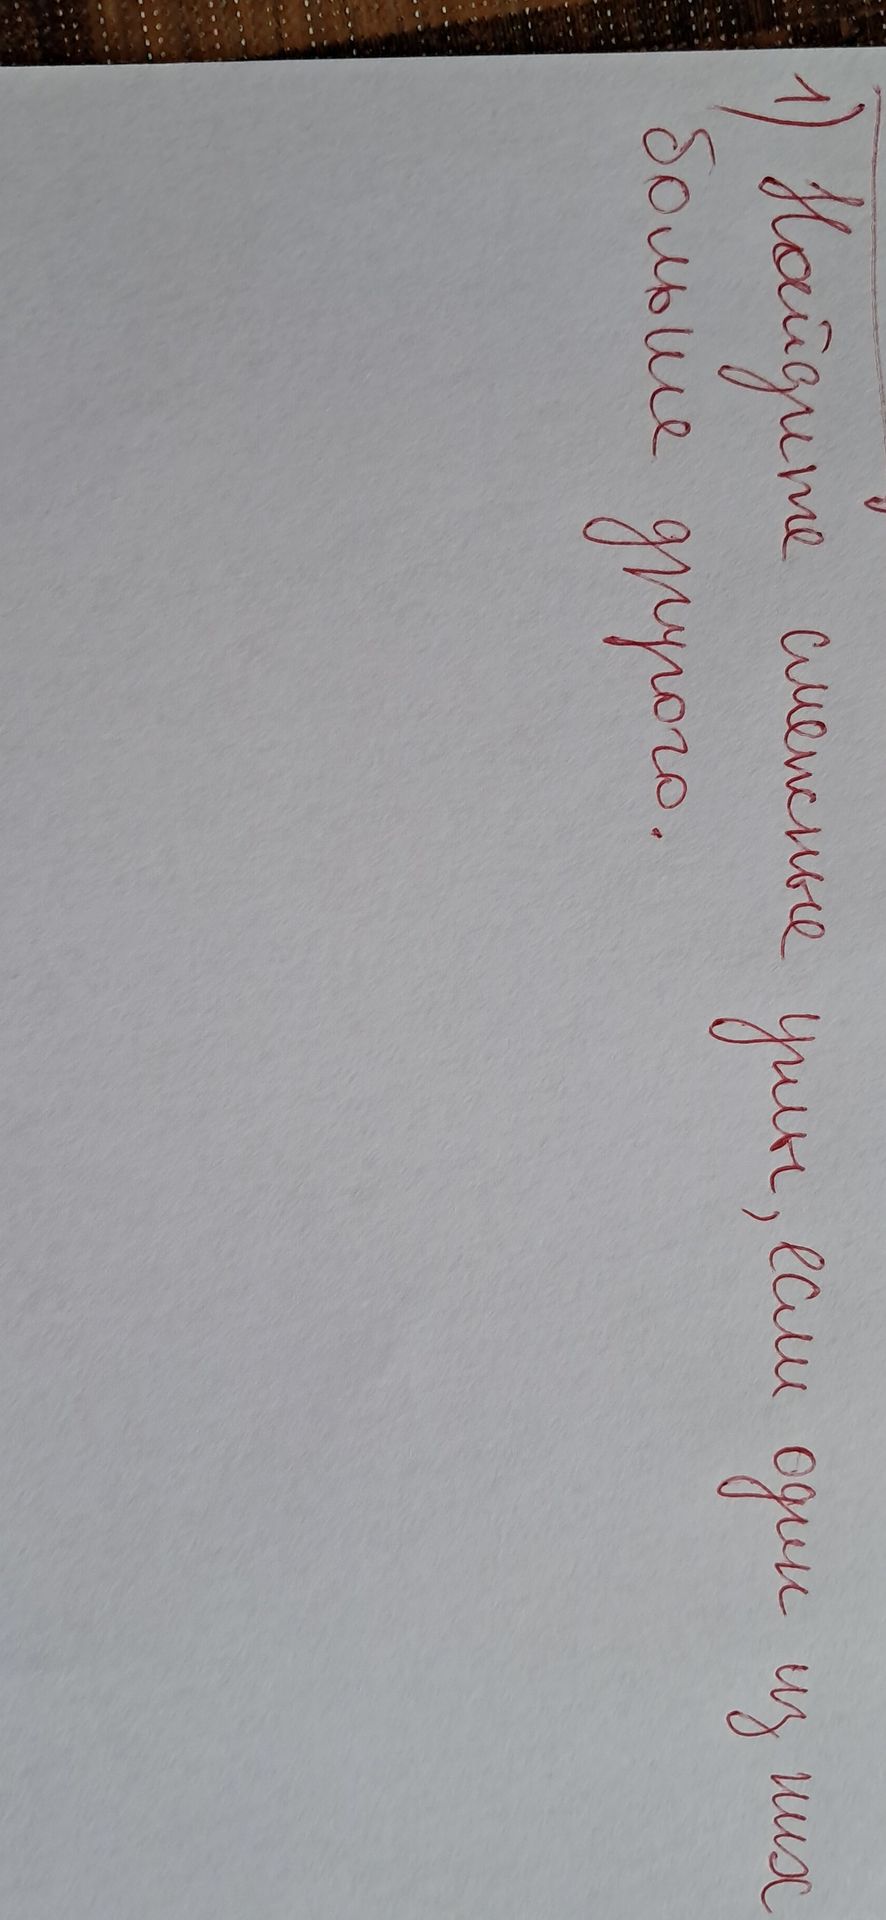 1) Найдите смежные углы, если один из них
больше другого.